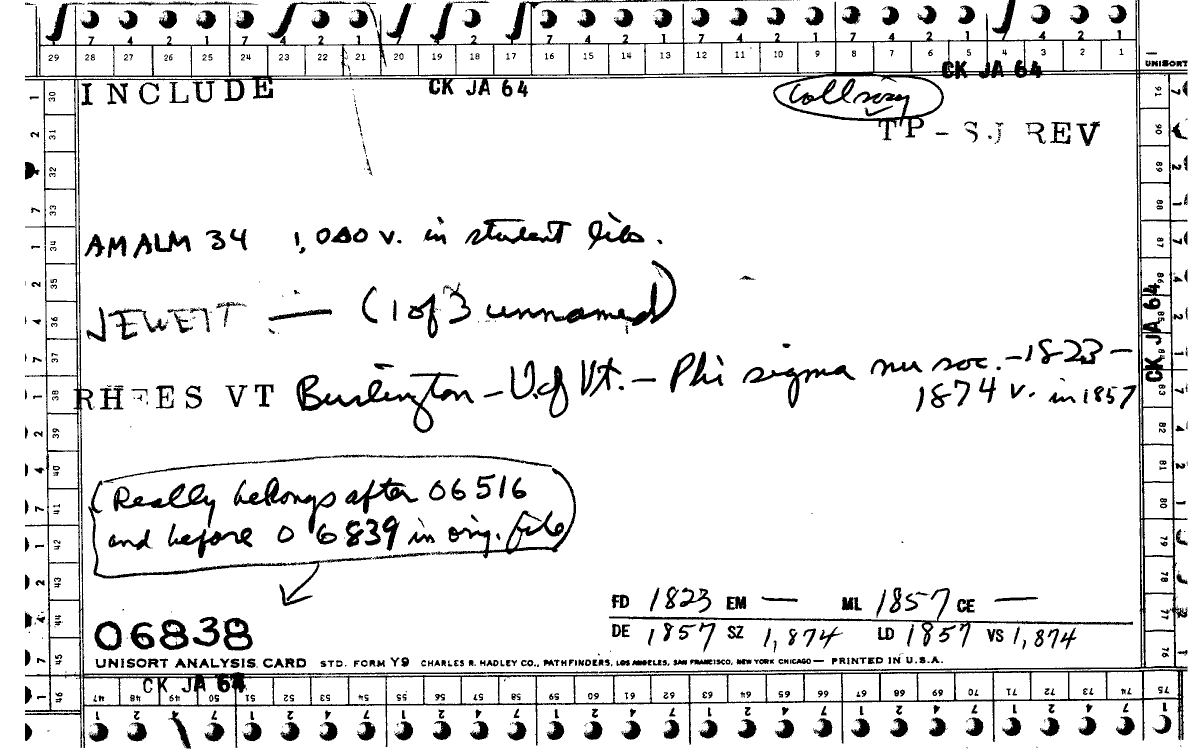 7 4 2 1 7 4 2 1 7 4 2 1 7 4 2 1 7 4 2 1 7 4 2 1 7 4 2 1
29 28 27 26 25 24 23 22 21 20 19 18 17 16 15 14 13 12 11 10 9 8 7 6 5 4 3 2 1
UNISORT
INCLUDE CK JA 64 CK JA 64
TP-SJ REV
AM ALM 34 1,000 v. in student libs.
JEWETT — (1 of 3 unnamed)
RHEES VT Burlington - U. of Vt. - Phi sigma nu soc. -1823-
1874 v. in 1857
CK JA 64
(Really belongs after 06516
and before 06839 in orig. file)
FD 1823 EM — ML 1857 CE —
DE 1857 SZ 1,874 LD 1857 VS 1,874
06838
UNISORT ANALYSIS CARD STD. FORM Y9 CHARLES R. HADLEY CO., PATHFINDERS, LOS ANGELES, SAN FRANCISCO, NEW YORK CHICAGO — PRINTED IN U.S.A.
CK JA 64
47 48 49 50 51 52 53 54 55 56 57 58 59 60 61 62 63 64 65 66 67 68 69 70 71 72 73 74 75